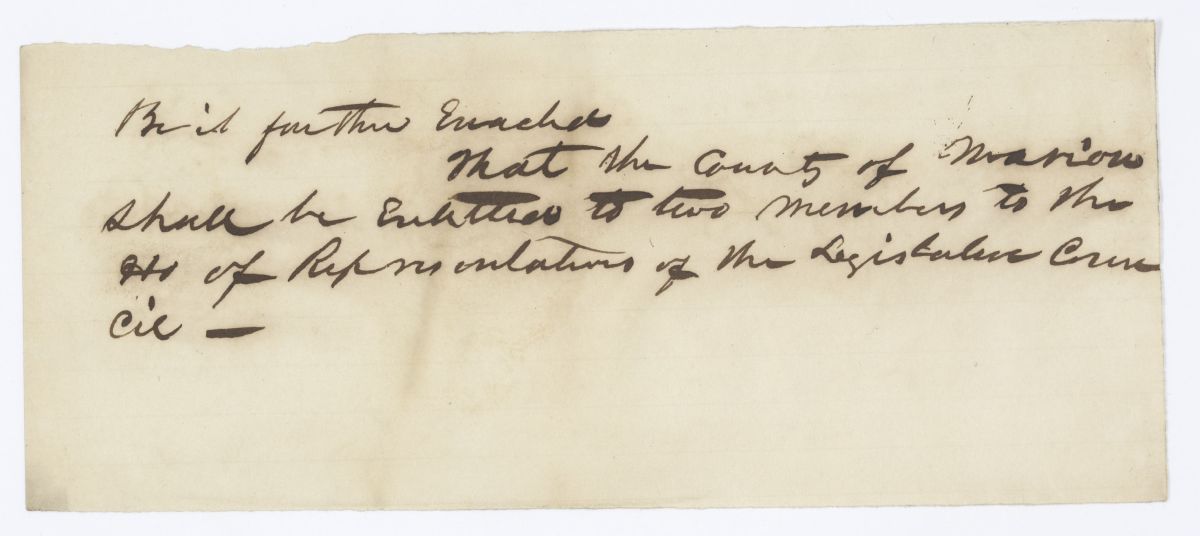 Be it further Enacted
That the County of Marion
shall be Entitled to two Members to the
Ho of Representatives of the Legislative Coun
cil —